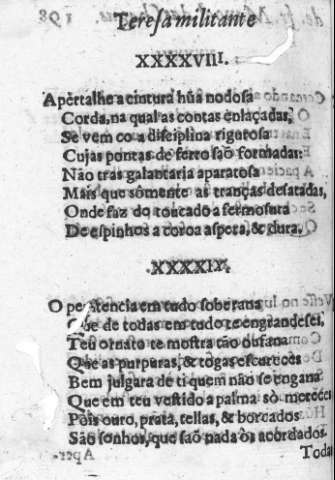 Teresa militante
XXXXVIII.
Apertalhe a cintura hũa nodosa
Corda, na qual as contas enlaçadas,
Se vem co a disciplina rigurosa
Cujas pontas de ferro saõ formadas:
Não tras galantaria aparatosa
Mais que sòmente as tranças desatadas,
Onde faz do toucado a fermosura
De espinhos a coroa aspera, & dura.
XXXXIX.
O penitencia em tudo soberana
Que de todas em tudo te engrandeses,
Teu ornato te mostra tão oufana
Que as purpuras, & togas escureces
Bem julgara de ti quem não se engana
Que em teu vestido a palma sò mereces
Pois ouro, prata, tellas, & borcados
São sonhos, que saõ nada òs acordados.
Toda